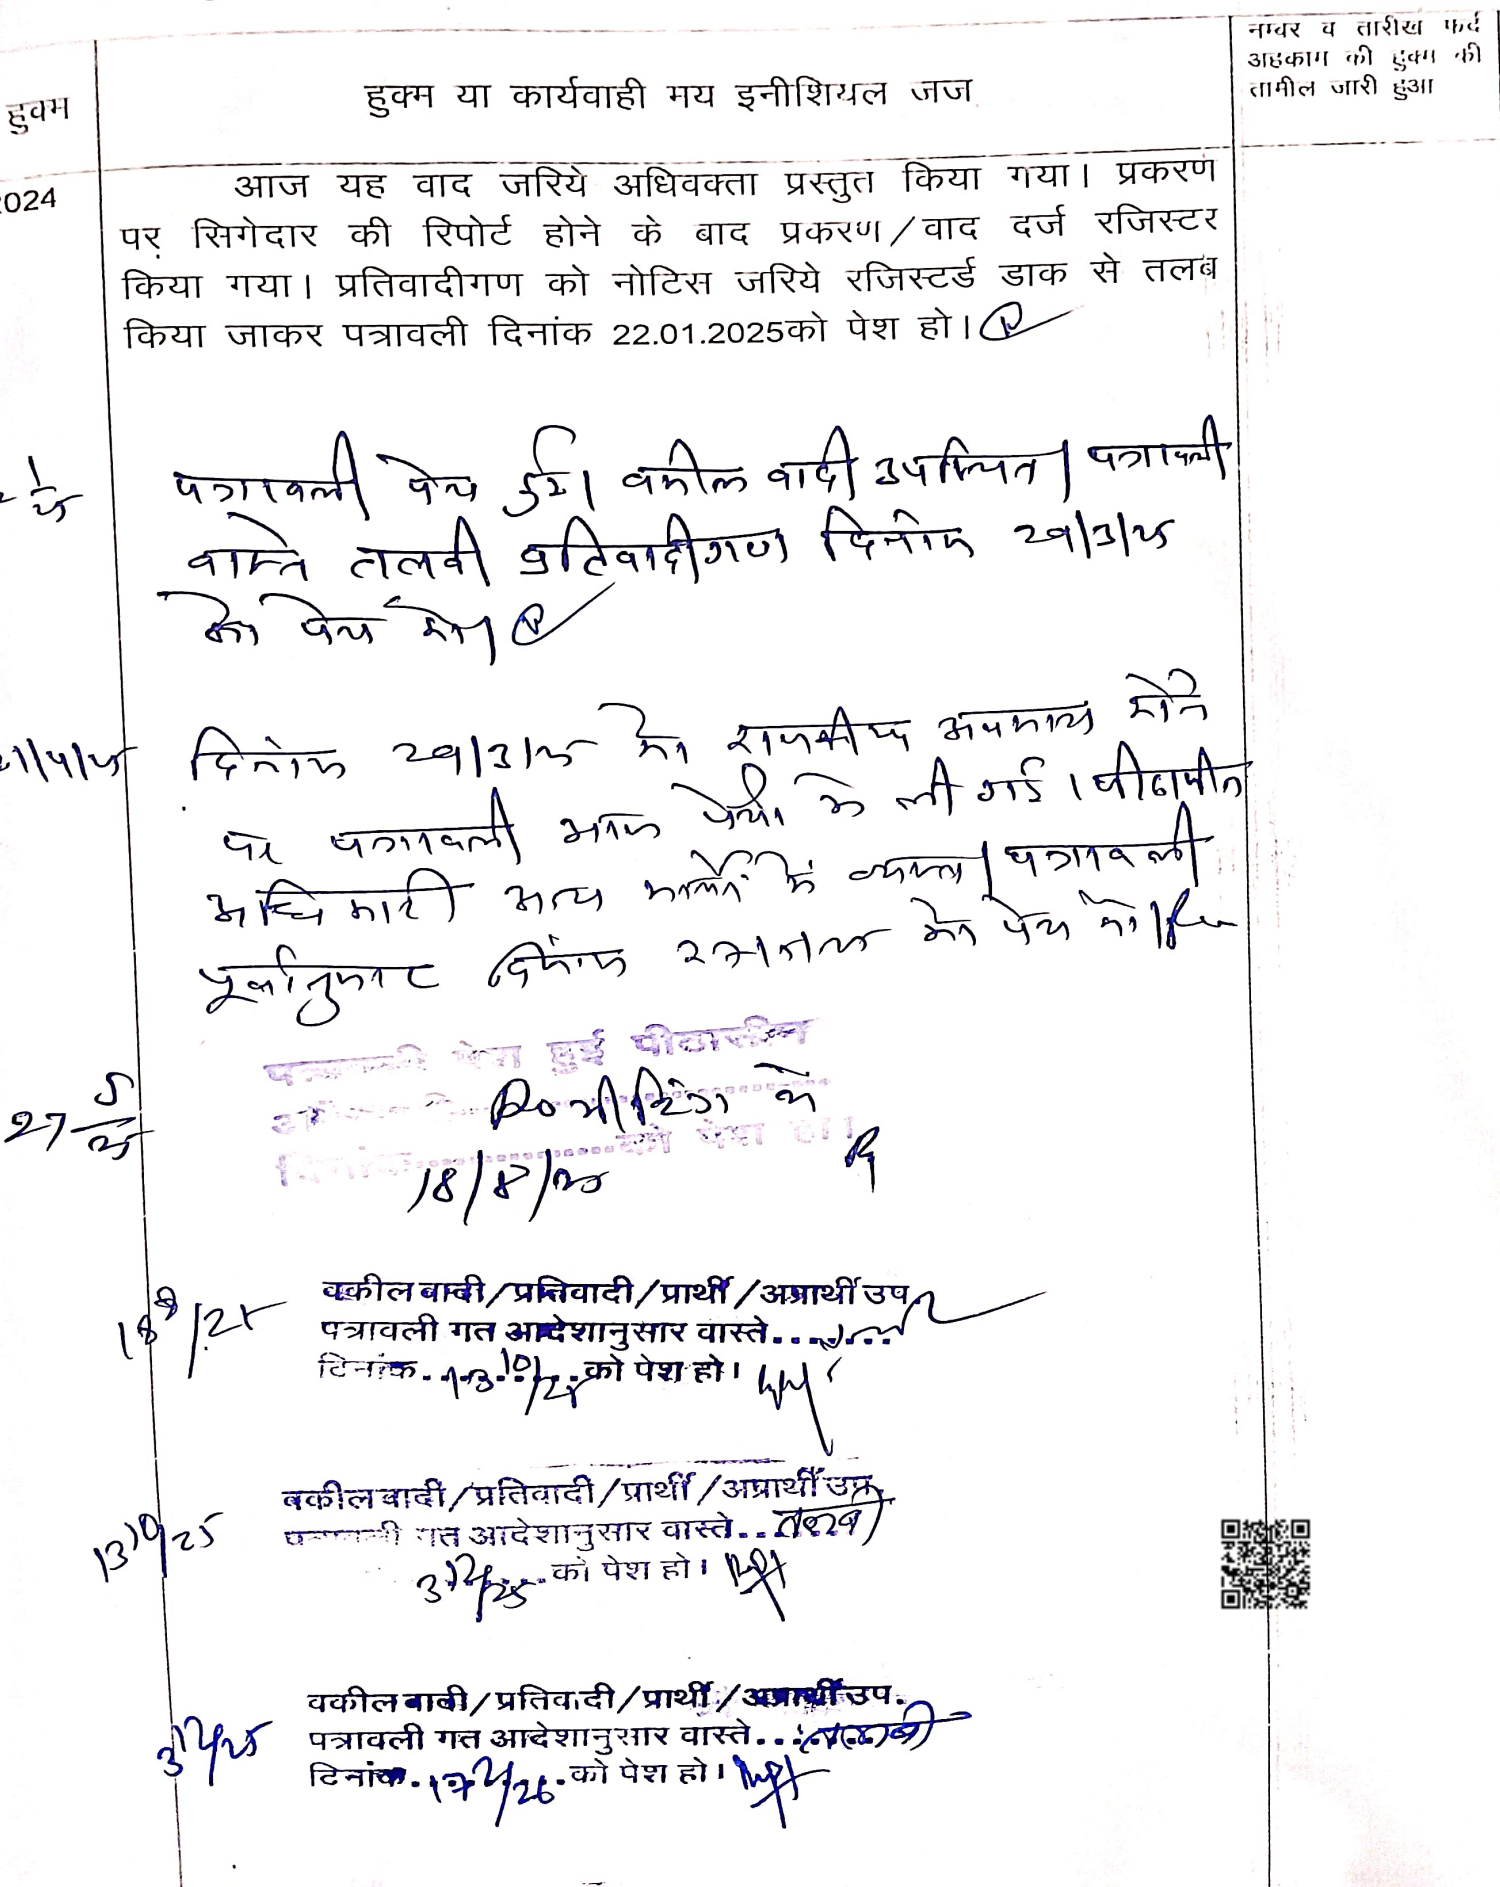 नम्वर व तारीख फर्द
अहकाम की हुक्म की
तामील जारी हुआ
हुक्म
हुक्म या कार्यवाही मय इनीशियल जज
2024
आज यह वाद जरिये अधिवक्ता प्रस्तुत किया गया। प्रकरण
पर सिगेदार की रिपोर्ट होने के बाद प्रकरण/वाद दर्ज रजिस्टर
किया गया। प्रतिवादीगण को नोटिस जरिये रजिस्टर्ड डाक से तलब
किया जाकर पत्रावली दिनांक 22.01.2025को पेश हो।
पत्रावली पेश हुई। वकील वादी उपस्थित। पत्रावली
वास्ते तलवी प्रतिवादीगण दिनांक 29/3/25
को पेश हो।
दिनांक 29/3/25 को राजकीय अवकाश होने
पर पत्रावली आज पेशी में ली गई। पीठासीन
अधिकारी अन्य कार्यों में व्यस्त। पत्रावली
पूर्वानुसार दिनांक को पेश हो।
पत्रावली पेश हुई पीठासीन
27 5/25
दिनांक को पेश हो।
18/8/25
18 8/25
वकील वादी/प्रतिवादी/प्रार्थी/अप्रार्थी उप.
पत्रावली गत आदेशानुसार वास्ते
दिनांक 13 10/25 को पेश हो।
13 10/25
वकील वादी/प्रतिवादी/प्रार्थी/अप्रार्थी उप.
पत्रावली गत आदेशानुसार वास्ते तलबी
3 12/25 को पेश हो।
3 12/25
वकील वादी/प्रतिवादी/प्रार्थी/अप्रार्थी उप.
पत्रावली गत आदेशानुसार वास्ते तलबी
दिनांक 17 2/26 को पेश हो।